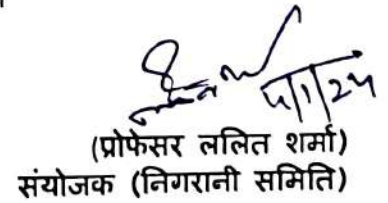 5/1/24
(प्रोफेसर ललित शर्मा)
संयोजक (निगरानी समिति)